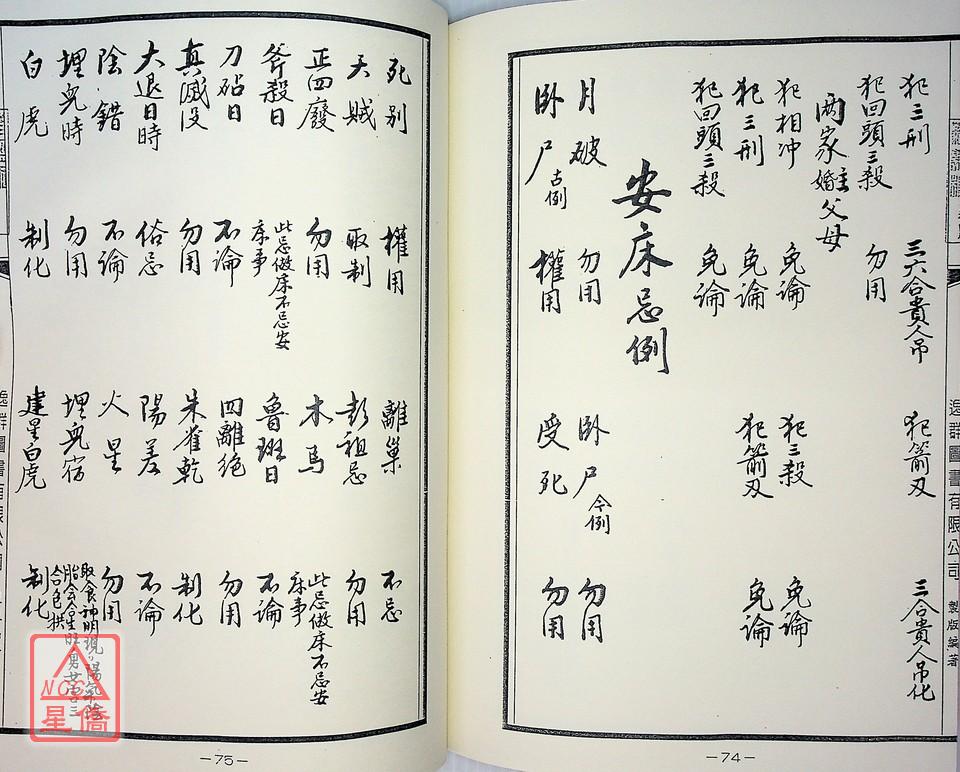 犯三刑 三六合貴人吊 犯箭刃 三合貴人吊化
犯回頭三殺 勿用
兩家主婚父母
犯相冲 免論 犯三殺 免論
犯三刑 免論 犯箭刃 免論
犯回頭三殺 免論
安床忌例
月破 勿用 卧尸今例 勿用
卧尸古例 權用 受死 勿用
逸群圖書有限公司 製版編著
—74—
死别 權用 離巢 不忌
天賊 取制 彭祖忌 勿用
正四廢 勿用 木馬 此忌做床不忌安床事
斧殺日 此忌做床不忌安床事 魯班日 不論
刀砧日 不論 四離絕 勿用
真滅没 勿用 朱雀乾 制化
大退日時 俗忌 陽差 不論
陰錯 不論 火星 勿用
埋兒時 勿用 埋兒宿
白虎 制化 建星白虎 制化
逸群圖書有限公司
—75—
NCC
星僑